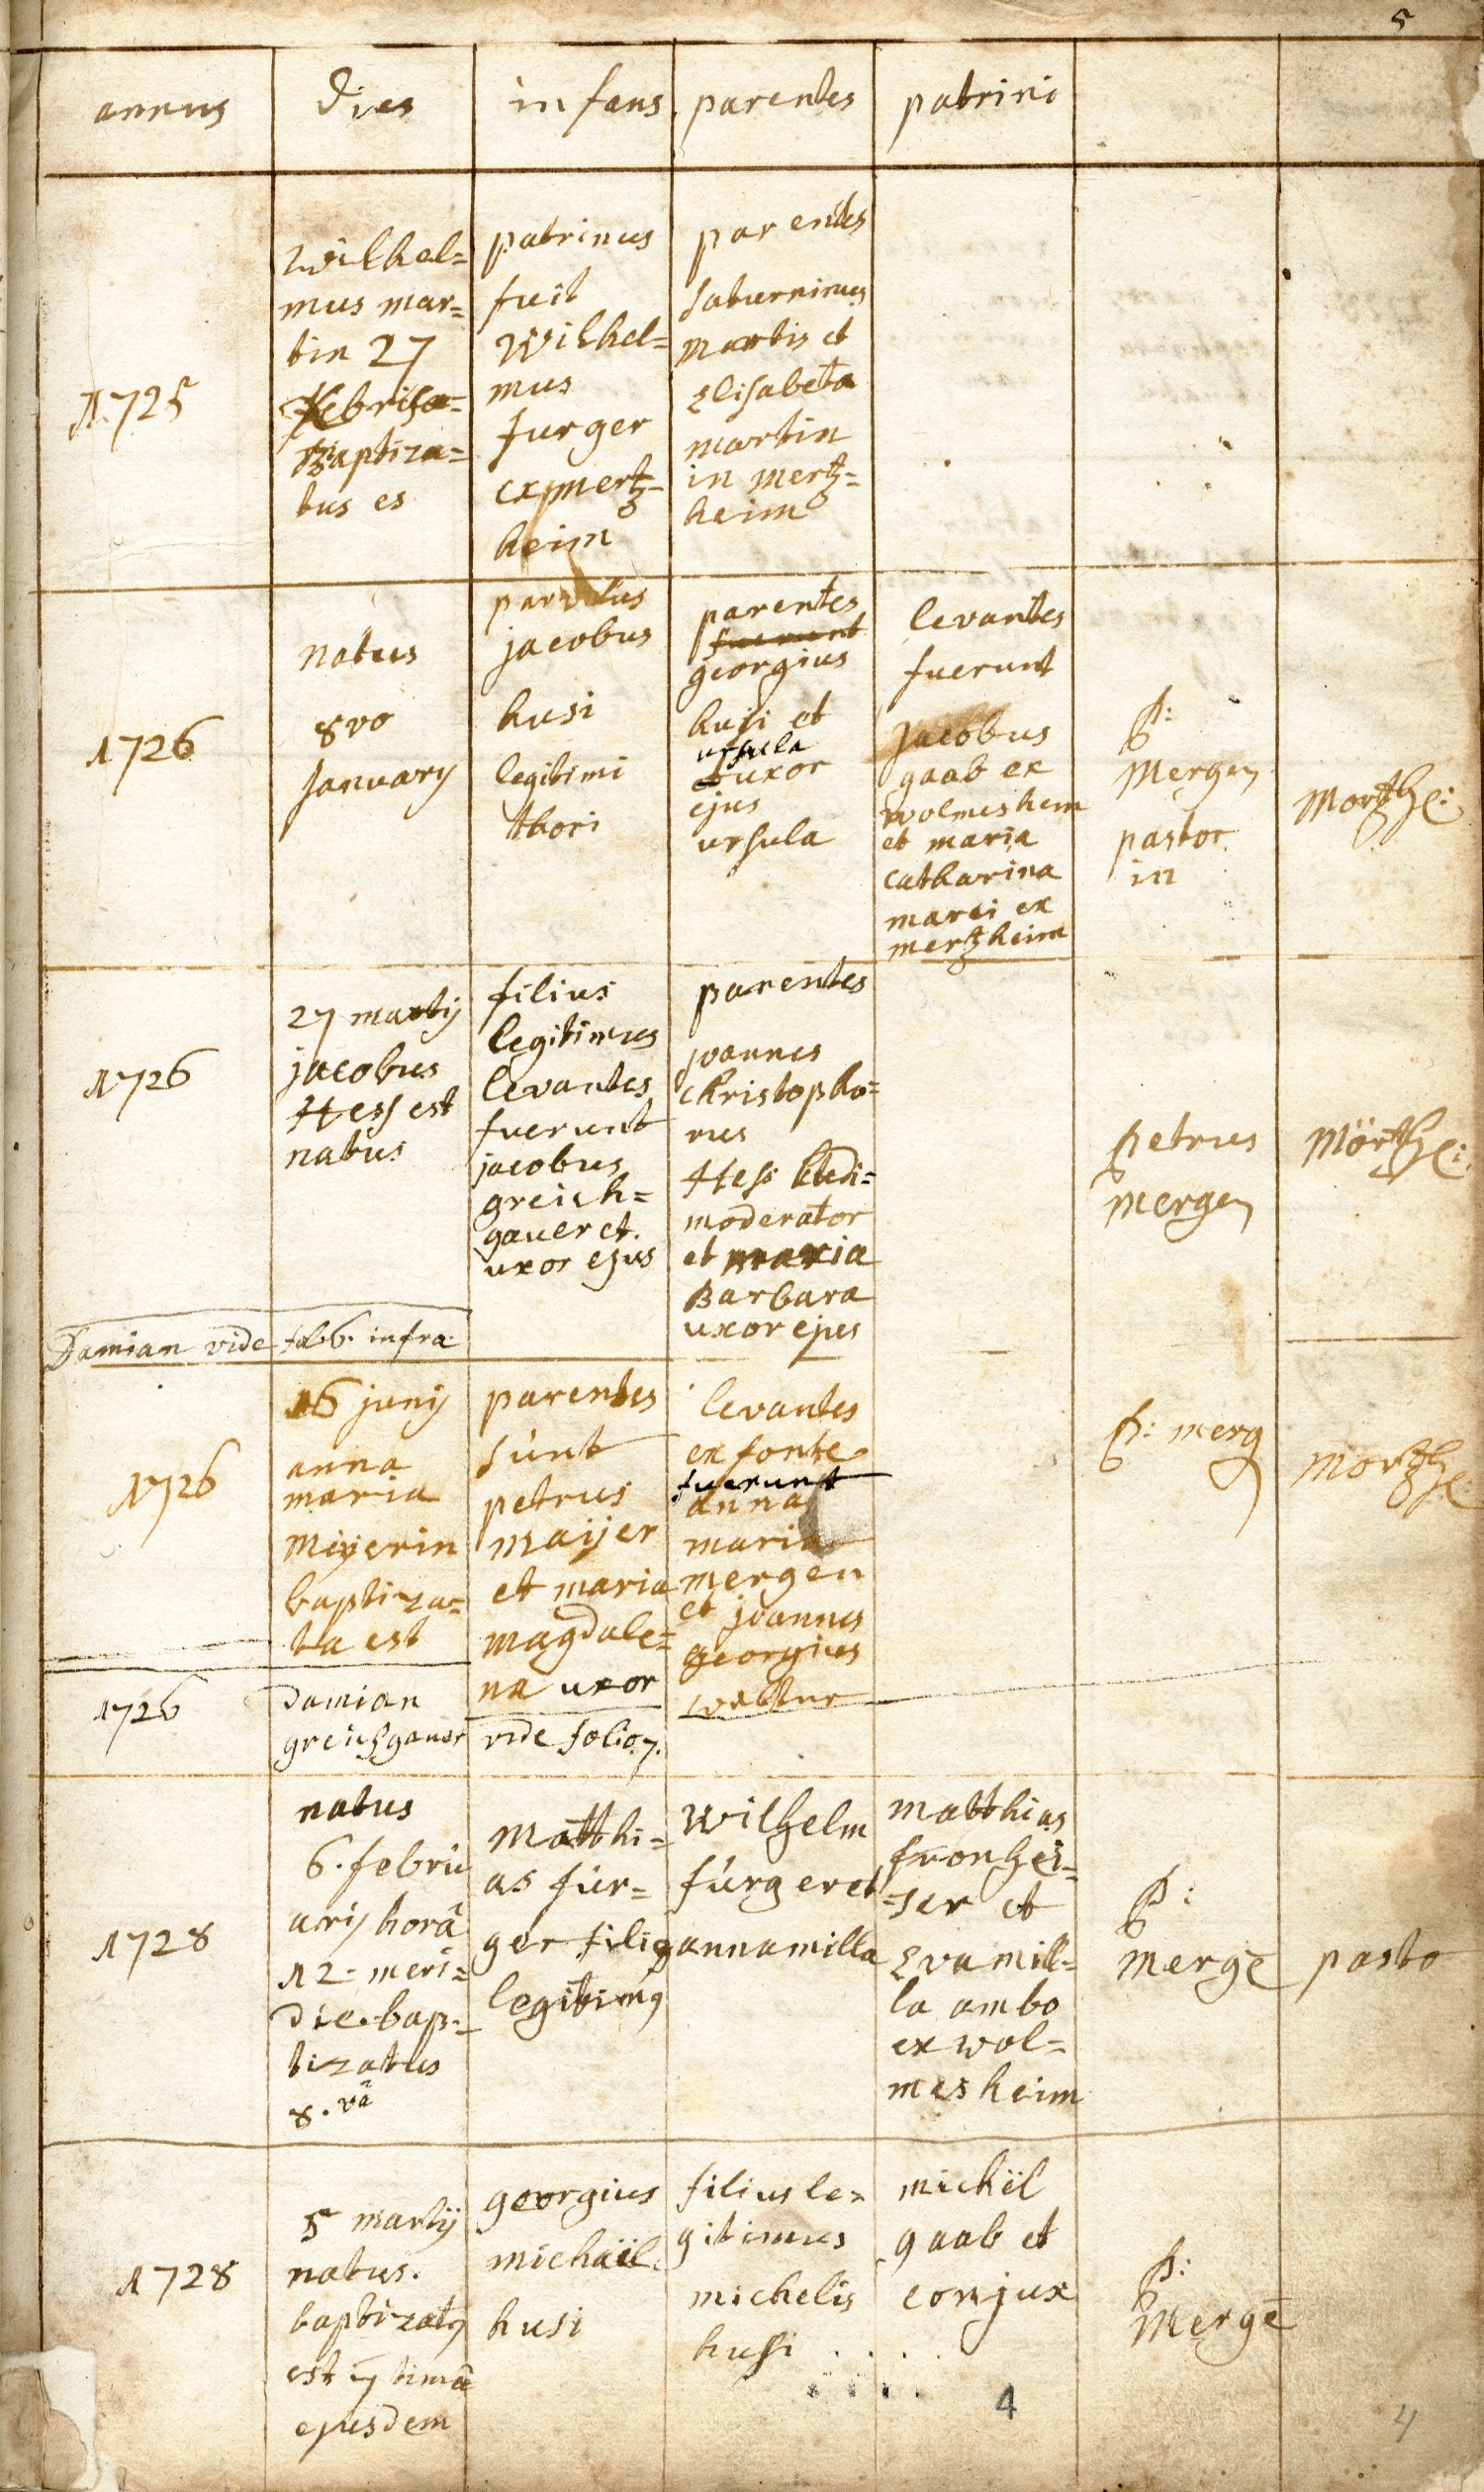 5
annus dies infans parentes patrini
1725
Wilhel=
mus mar=
tin 27
Baptiza=
tus es
patrinus
fuit
Wilhel=
mus
furger
ex mertz-
heim
parentes
saturninus
martis et
Elisabeta
martin
in mertz=
heim
1726
natus
8vo
January
parvulus
jacobus
husi
legitimi
thori
parentes
fuerunt
georgius
husi et
ursula
uxor
ejus
ursula
levantes
fuerunt
Jacobus
gaab ex
wolmeshem
et maria
catharina
marci ex
mertzheim
P:
Mergen
pastor
in
Mortzhe:
1726
27 martij
jacobus
Hess est
natus
filius
legitimus
levantes
fuerunt
jacobus
greich=
gauer et.
uxor ejus
parentes
joannes
christopho=
rus
Hess ludi=
moderator
et maria
Barbara
uxor ejus
petrus
mergen
Mörtzhe:
Damian vide fol. 6. infra.
1726
16 junij
anna
maria
Meyerin
baptiza=
ta est
parentes
sunt
petrus
maijer
et maria
magdale=
na uxor
levantes
ex fonte
fuerunt
anna
maria
mergen
et joannes
georgius
P: merg
Mortzhe
1726
Damian
greichgauer
vide folio. 7.
1728
natus
6. febru
arij horâ
12. meri=
die. bap=
tizatus
8. vâ
Matthi=
as fur=
ger filig
legitimg
Wilhelm
furger et
anna milla
matthias
fronhei=
ser et
Eva mill=
la ambo
ex wol=
mesheim
P:
Mergē
pasto
1728
5 martij
natus.
baptizatg
est 7 timâ
ejusdem
georgius
michaël
husi
filius le=
gitimus
michelis
hussi . . . .
michël
gaab et
conjux
P:
Mergē
4
4